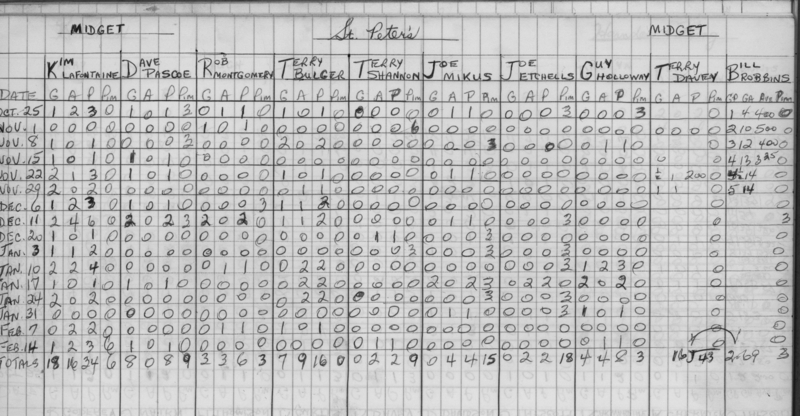 MIDGET St. Peter's MIDGET
KIM LAFONTAINE DAVE PASCOE ROB MONTGOMERY TERRY BULGER TERRY SHANNON JOE MIKUS JOE ETCHELLS GUY HOLLOWAY TERRY DAVEY BILL ROBBINS
DATE G A P Pim G A P Pim G A P Pim G A P Pim G A P Pim G A P Pim G A P Pim G A P Pim G A P Pim GP GA Ave Pim
OCT. 25 1 2 3 0 1 0 1 3 0 1 1 0 1 0 1 0 0 0 0 0 0 1 1 0 0 0 0 3 0 0 0 3 1 4 400 0
NOV. 1 0 0 0 0 0 0 0 0 1 0 1 0 0 0 0 0 0 0 6 0 0 0 0 0 0 0 0 0 0 0 0 0 0 0 0 2 10 500 0
NOV. 8 1 0 1 0 0 0 0 3 0 0 0 0 2 0 2 0 0 0 0 0 0 0 0 3 0 0 0 0 0 1 1 0 3 12 400 0
NOV. 15 1 0 1 0 1 0 1 0 0 0 0 0 0 0 0 0 0 0 0 0 0 0 0 0 0 0 0 0 0 0 0 0 0 4 13 325 0
NOV. 22 2 1 3 0 1 0 1 0 0 0 0 0 1 0 1 0 0 0 0 0 0 1 1 0 0 0 0 0 0 0 0 0 1 200 0 14
NOV. 29 2 0 2 0 0 0 0 0 0 0 0 0 0 1 1 0 0 0 0 0 0 0 0 0 0 0 0 0 0 0 0 0 1 1 0 5 14
DEC. 6 1 2 3 0 1 0 1 0 0 0 0 3 1 1 2 0 0 0 0 0 0 0 0 0 0 0 0 0 0 0 0 0 0
DEC. 11 2 4 6 0 2 0 2 3 2 0 2 0 1 1 2 0 0 0 0 0 0 1 1 0 0 0 0 3 0 0 0 0 0 3
DEC. 20 1 0 1 0 0 0 0 0 0 0 0 0 0 0 0 0 0 1 1 0 0 0 0 3 0 0 0 0 0 0 0 0 0
JAN. 3 1 1 2 0 0 0 0 0 0 0 0 0 0 0 0 0 0 0 0 3 0 0 0 3 0 0 0 3 0 0 0 0 0
JAN. 10 2 2 4 0 0 0 0 0 0 1 1 0 0 2 2 0 0 0 0 0 0 0 0 0 0 0 0 3 1 2 3 0 0
JAN. 17 1 0 1 0 1 0 1 0 0 0 0 0 0 2 2 0 0 0 0 0 2 0 2 3 0 2 2 0 2 0 2 0 0
JAN 24 2 0 2 0 0 0 0 0 0 0 0 0 0 2 2 0 0 0 0 0 0 0 0 3 0 0 0 3 0 0 0 0 0
JAN. 31 0 0 0 0 0 0 0 0 0 0 0 0 0 0 0 0 0 0 0 0 0 1 1 0 0 0 0 3 1 0 1 0 0
FEB. 7 0 2 2 0 0 0 0 0 0 1 1 0 1 0 1 0 0 0 0 0 0 0 0 0 0 0 0 0 0 0 0 0 0
FEB. 14 1 2 3 6 1 0 1 0 0 0 0 0 0 0 0 0 0 1 1 0 0 0 0 0 0 0 0 0 0 0 0 0 0
TOTALS 18 16 34 6 8 0 8 9 3 3 6 3 7 9 16 0 0 2 2 9 0 4 4 15 0 2 2 18 4 4 8 3 16 43 2.69 3